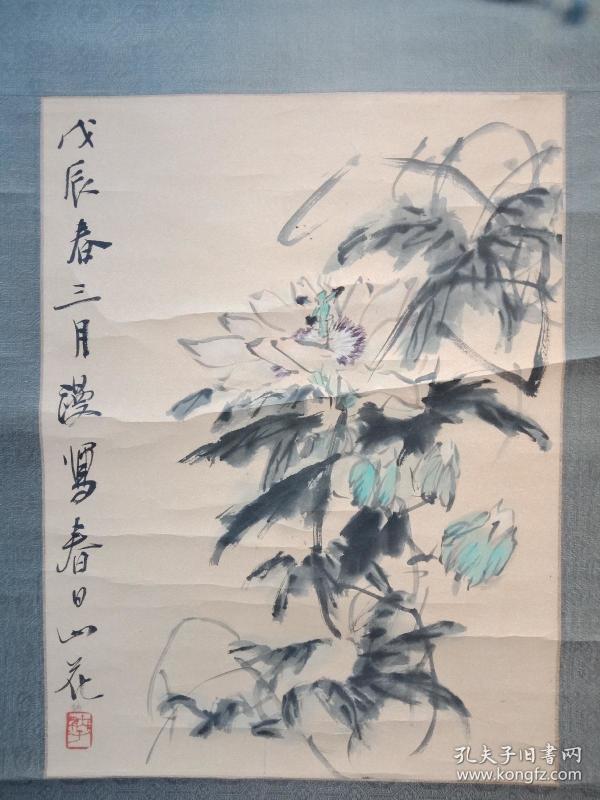 戊辰春三月漫写春日山花
孔夫子旧书网
www.kongfz.com